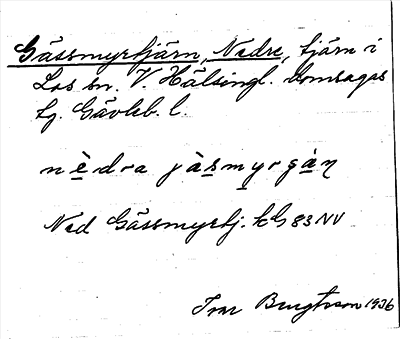 Gässmyrtjärn, Nedre, tjärn i
Los sn. V. Hälsingl. domsagas
tg. Gävleb. l.
nèdra jàsmyrgàn
Ned Gässmyrtj. kG 83 NV
Bengtsson 1936